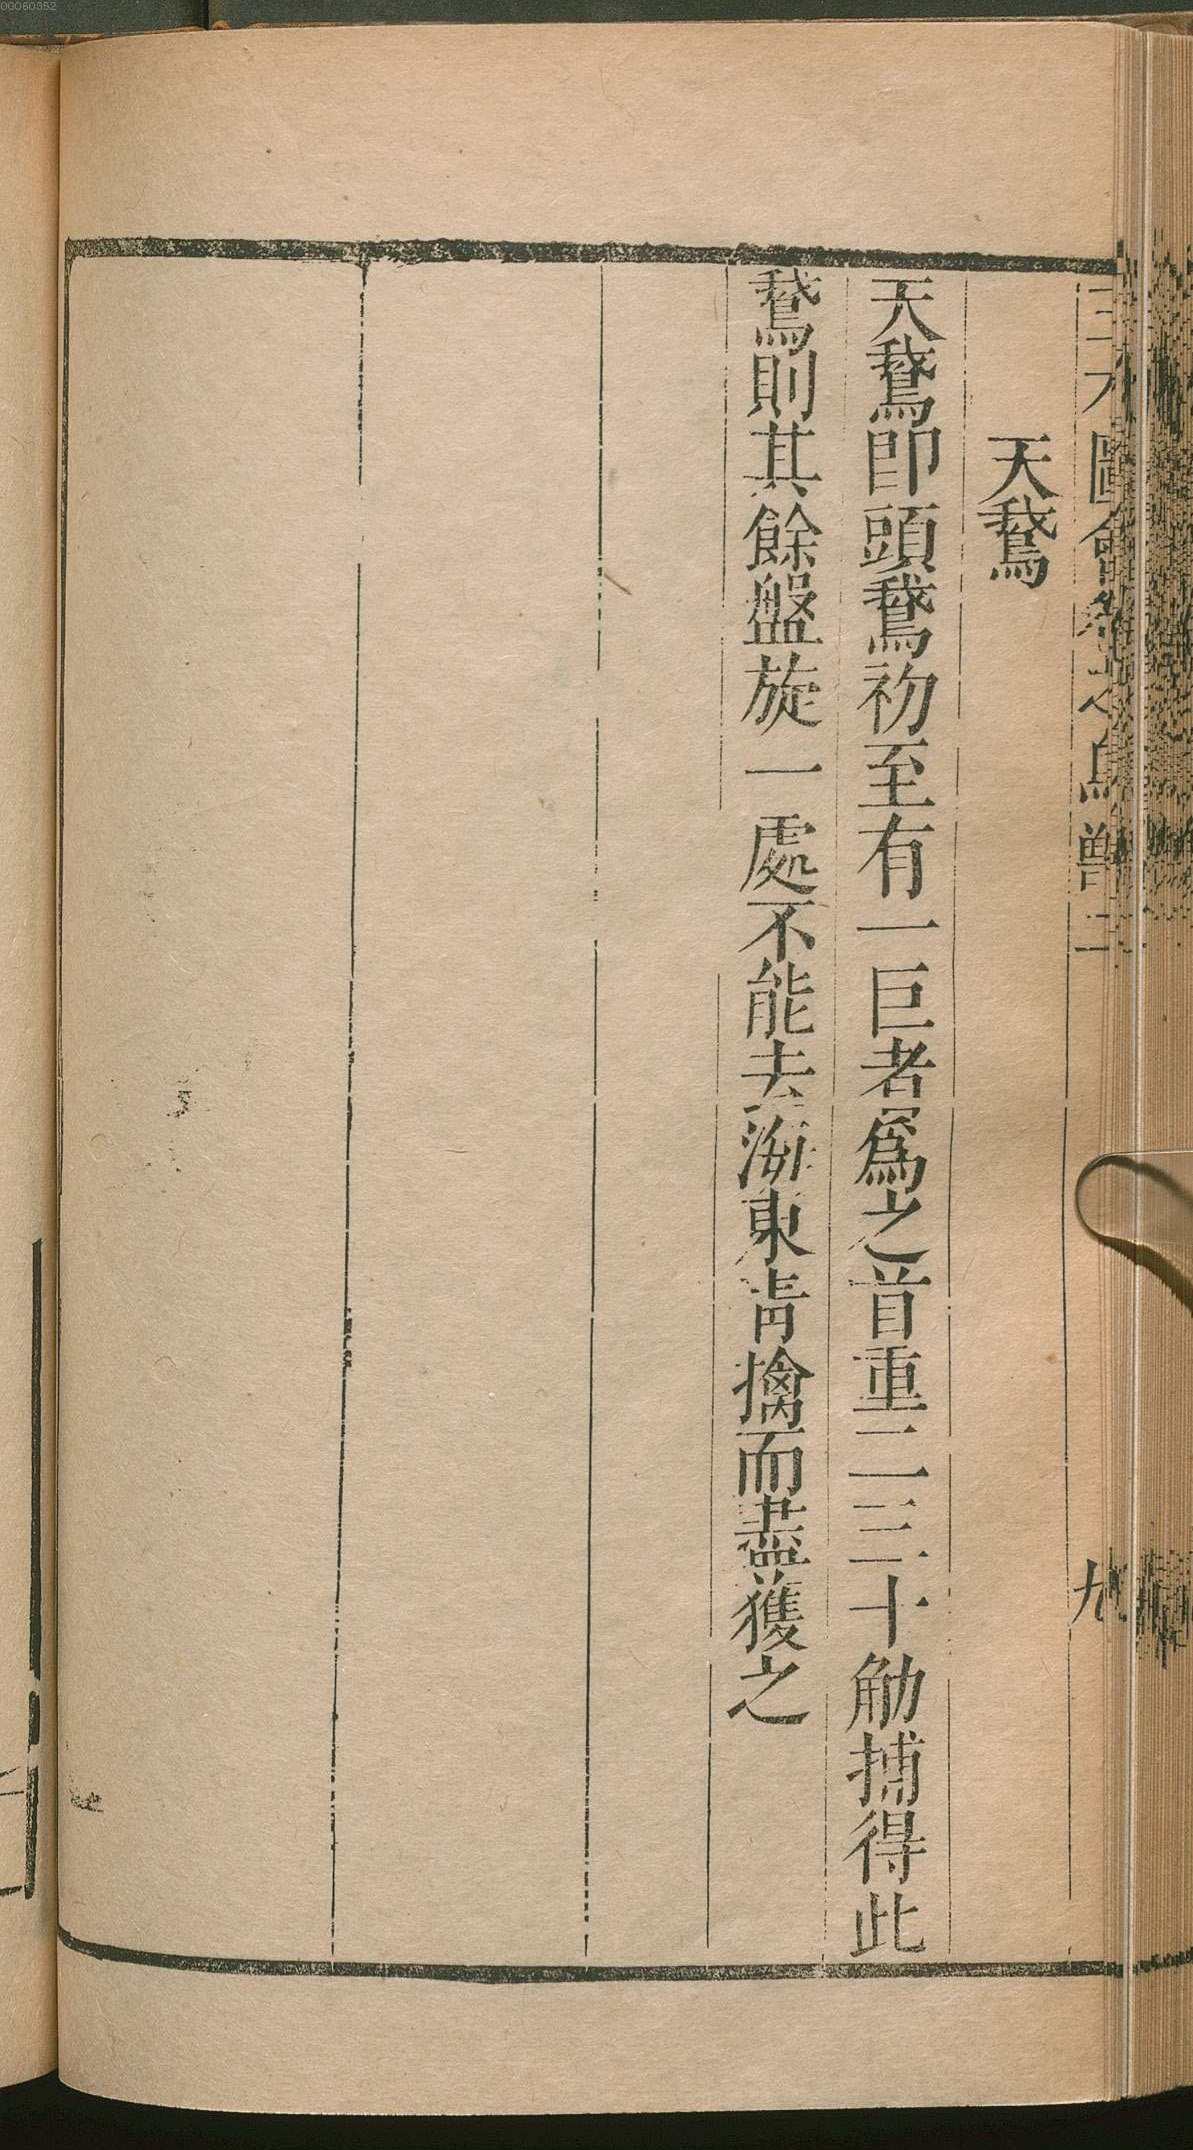 00060352
三才圖會 鳥獸二 九
天鵞
天鵞即頭鵞初至有一巨者爲之首重二三十觔捕得此
鵞則其餘盤旋一處不能去海東靑擒而盡獲之